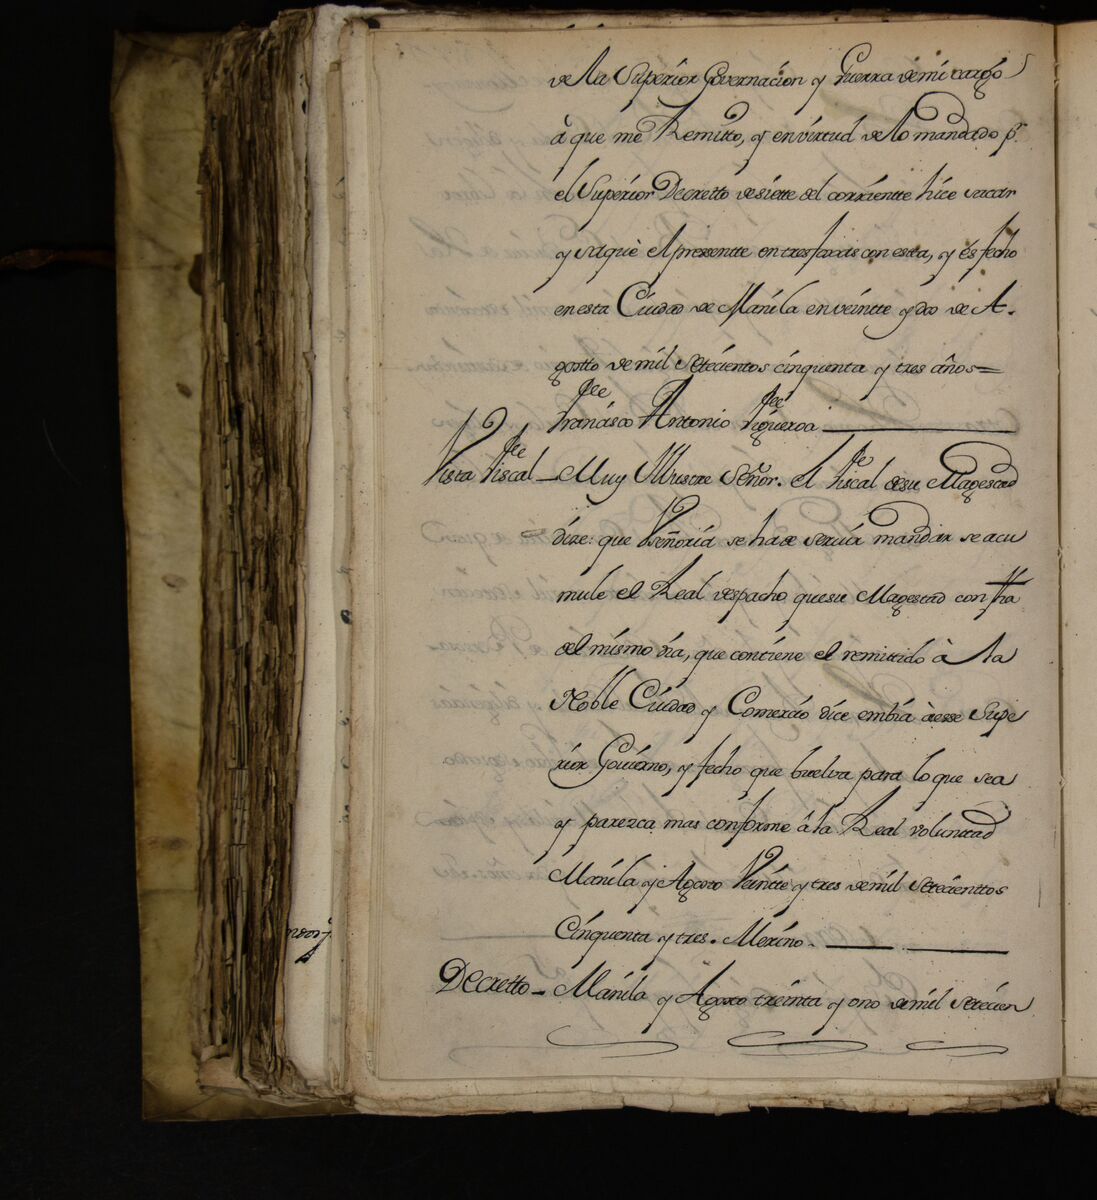 de la Superior Governacion y Guerra de mi cargo
à que me Remitto, y en virtud de lo mandado pr.
el Superior Decretto de siette del corrientte hice sacar
y saquè el presentte en tres foxas con esta, y és fecho
en esta Ciudad de Manila en veintte y dos de A-
gostto de mil Setecientos cinquenta y tres años=
Francisco Antonio Figueroa
Vista Fiscal - Muy Illustre Señor. el Fiscal de su Magestad
dize: que Vseñoria se ha de servir mandar se acu
mule el Real despacho que su Magestad con fha
del mismo dia, que contiene el remittido à la
Noble Ciudad y Comercio dice embia à esse Supe
rior Govierno, y fecho que buelva para lo que sea
y parezca mas conforme â la Real voluntad
Manila y Agosto Veintte y tres de mil Setecienttos
Cinquenta y tres. Merino.
Decretto - Manila y Agosto treinta y uno de mil Setecien